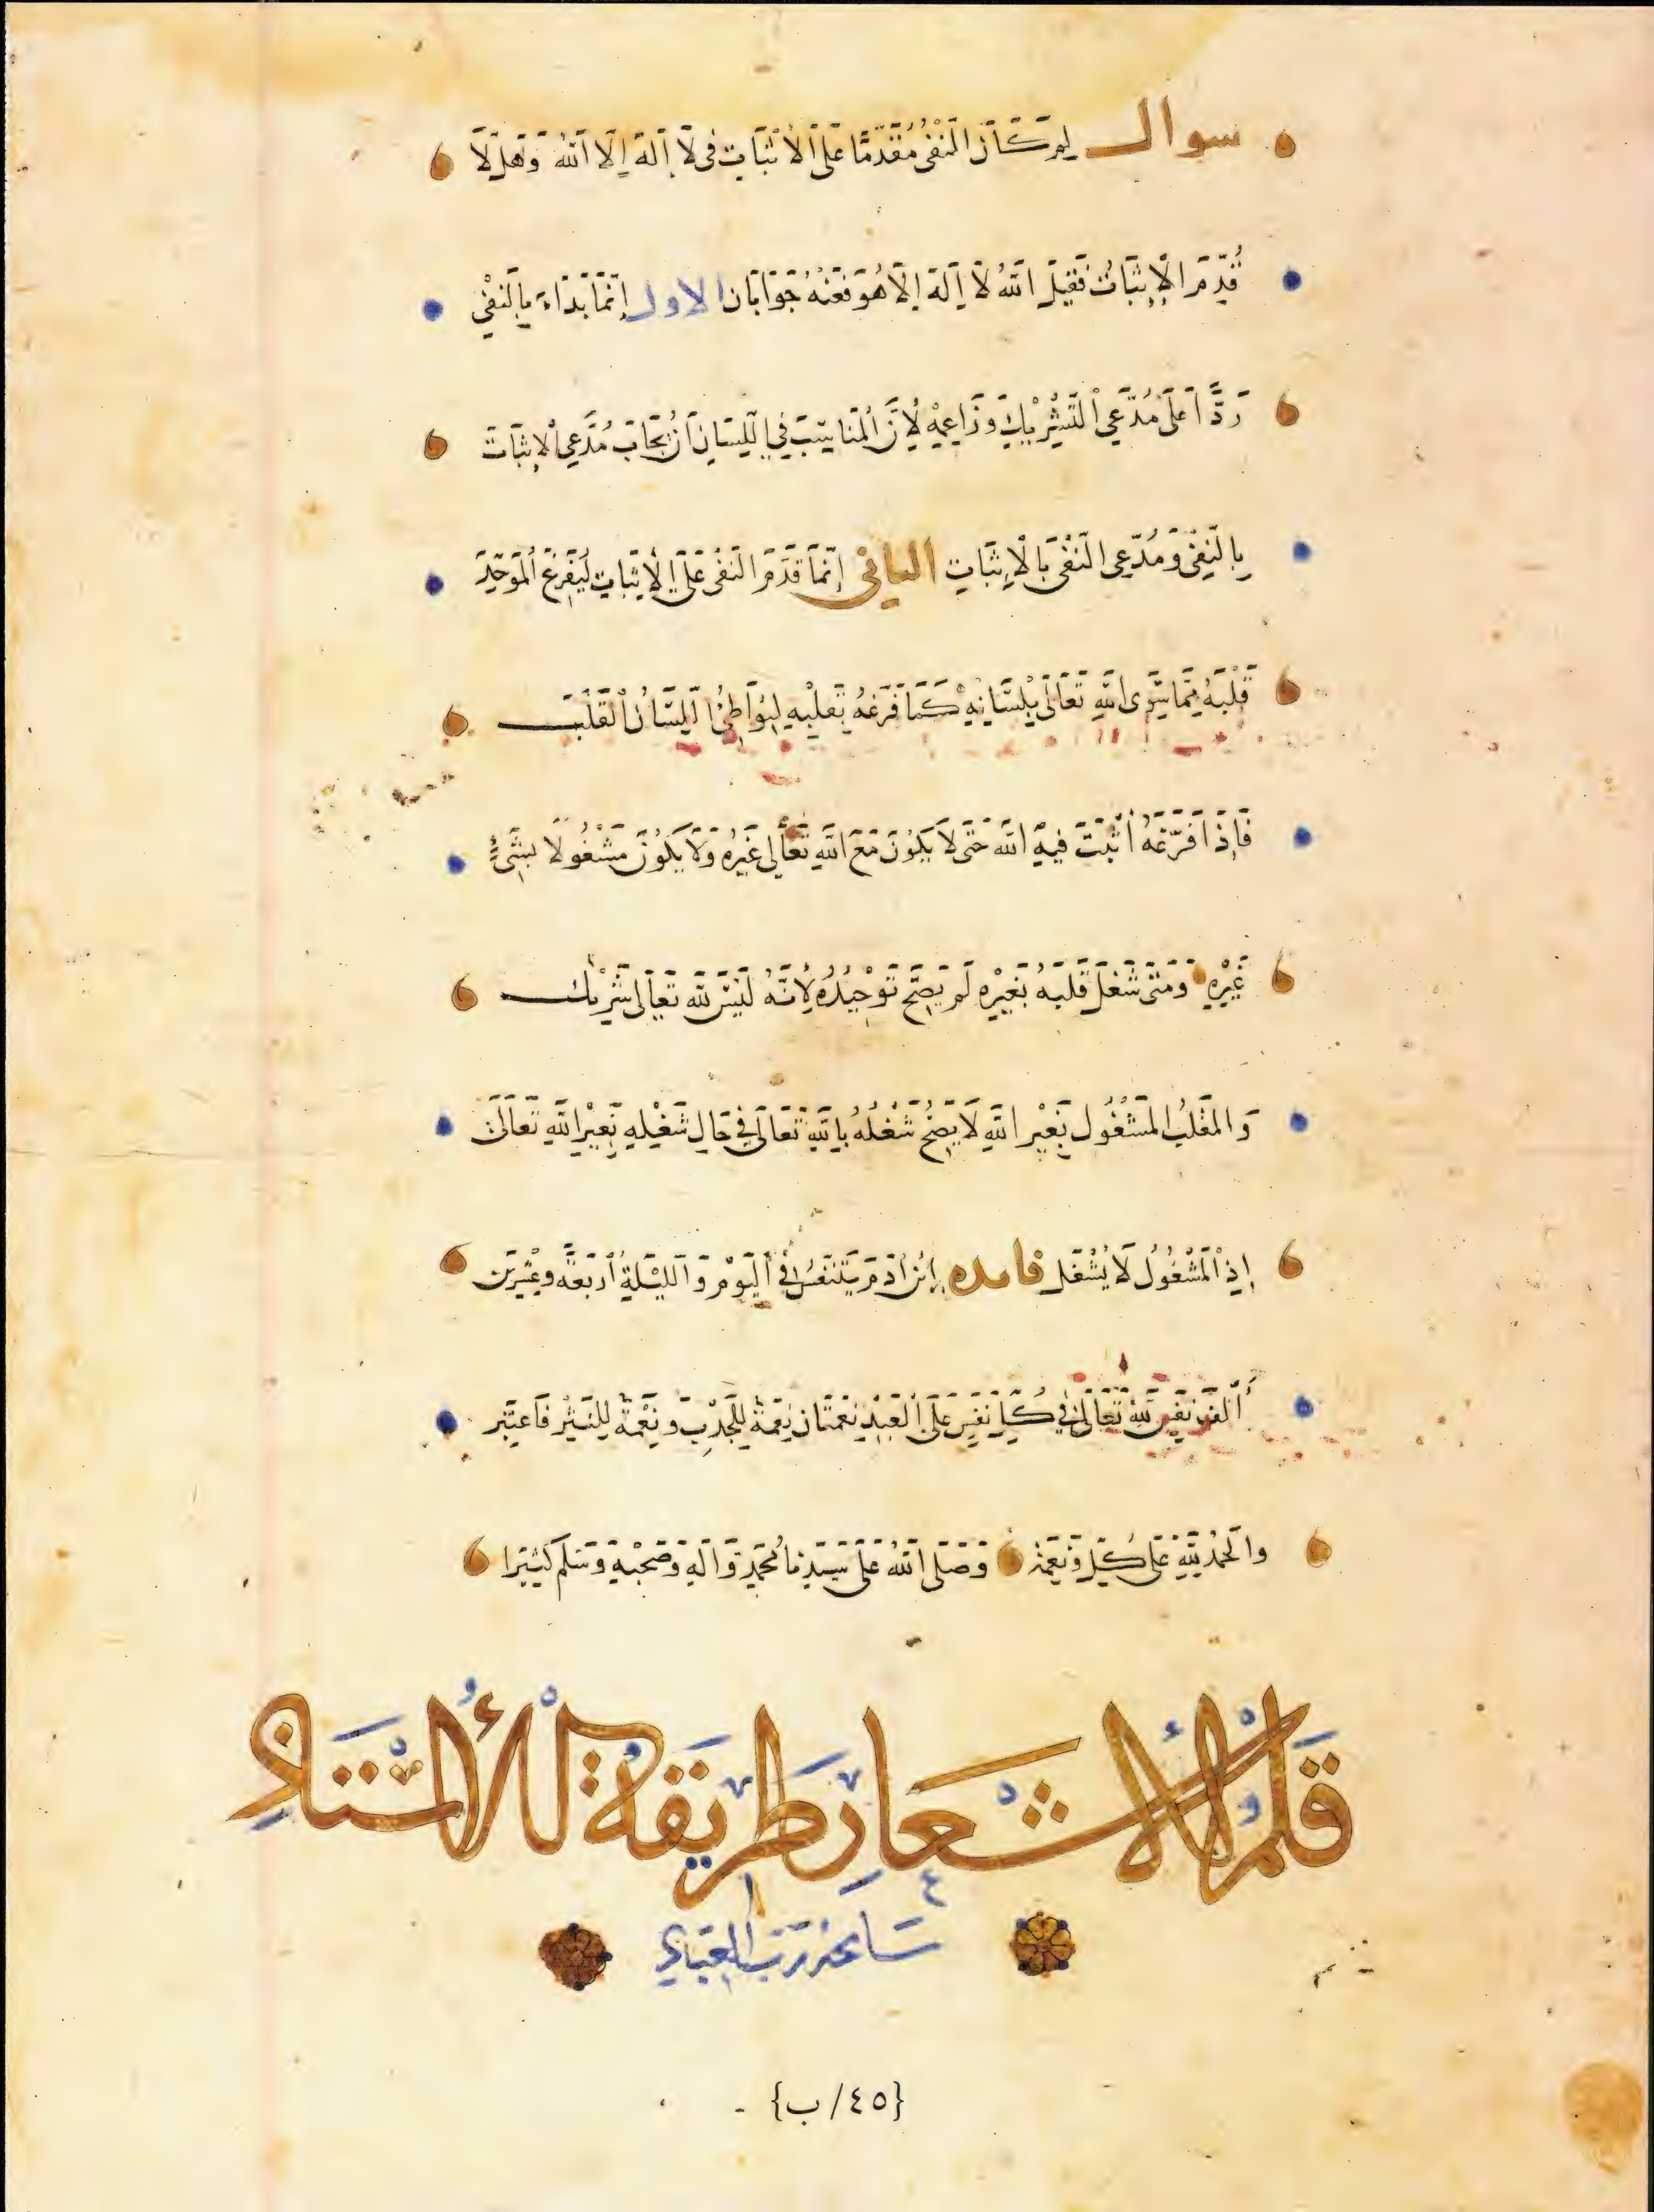 سوال لِمَ كَانَ النَّفْىُ مُقَدَّمًا عَلَى الْاِثْبَاتِ فى لَا إِلَهَ إِلَّا اللهُ وَهَلَّا
قُدِّمَ الْإِثْبَاتُ فَقِيلَ اللهُ لَا إِلَهَ إِلَّا هُوَ فَعَنْهُ جَوَابَان الاول إِنَّمَا بَدَاءَ بِالنَفْيِ
رَدًّا عَلَى مُدَّعِى التَّشْرِيْكِ وَزَاعِمِهِ لِأَنَّ الْمُنَاسِبَ فِي اللِّسَانِ أَنْ يُجَابَ مُدَّعِى الْإِثْبَاتَ
بِالنَفْىِ وَمُدَّعِى النَفْىَ بِالْإِثْبَاتِ الثانى إِنَّمَا قَدَّمَ النَفْىَ عَلَى الْإِثْبَاتِ لِيُفَرِغَ الْمُوَحِّدَ
قَلْبَهُ مِمَّا سِوَى اللهِ تَعَالَى بِلِسَانِهِ كَمَا فَرَّغَهُ بِقَلْبِهِ لِيُوَاطِئَ اللِّسَانُ الْقَلْبَ
فَإِذَا فَرَّغَهُ أُثْبَتَ فِيهِ اللهُ حَتَّى لَا يَكُونَ مَعَ اللهِ تَعَالَى غَيْرُهُ وَلَا يَكُونَ مَشْغُولًا بِشَىْءٍ
غَيْرِهِ وَمَتَى شَغَلَ قَلْبَهُ بِغَيْرِهِ لَمْ يَصِحَّ تَوْحِيدُهُ لِأَنَّهُ لَيْسَ لِلهِ تَعَالَى شَرِيْك
وَالقَلْبُ الْمَشْغُول بِغَيْرِ اللهِ لَا يَصِحُّ شُغْلُهُ بِاللهِ تَعَالَى فِى حَالِ شَغْلِهِ بِغَيْرِ اللهِ تَعَالَى
إِذِ الْمَشْغُولُ لَا يُشْغَل فايده إِبْنُ آدَمَ يَتَنَفَّسُ فِى الْيَوْمِ وَاللَّيْلَةِ أَرْبَعَةً وَعِشْرِيْنَ
أَلْفَ نَفَسٍ لِلهِ تَعَالَى فِي كُلِّ نَفَسٍ عَلَى الْعَبْدِ نِعْمَتَان نِعْمَةً لِلْجَذْبِ وَنِعْمَةً لِلنَّشْرِ فَاعْتَبِر
وَالْحَمْدُ لِلهِ عَلَى كُلِّ نِعَمِهِ وَصَلَّى اللهُ عَلَى سَيِّدِنَا مُحَمَّدٍ وَآلِهِ وَصَحْبِهِ وَسَلَّمَ كَثِيْرًا
قَلَمُ الْأَشْعَارِ طَرِيقَةُ الْأُسْتَاذِ
سَامَحَهُ رَبُّ الْعِبَادِ
{٤٥/ب}